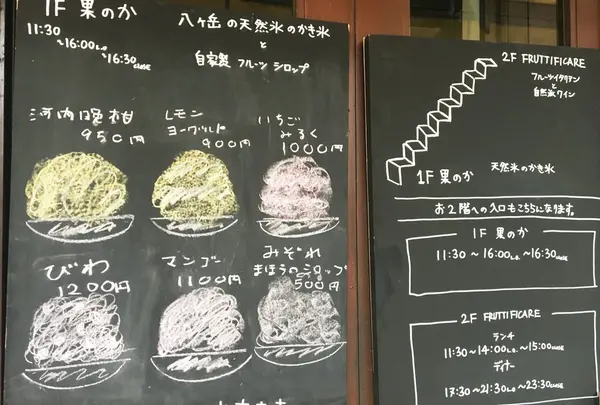 1F 果のか
11:30
~16:00L.O.
~16:30CLOSE
八ヶ岳の天然氷のかき氷
と
自家製フルーツシロップ
河内晩柑
950円
レモン
ヨーグルト
900円
いちご
みるく
1000円
びわ
1200円
マンゴー
1100円
みぞれ
まほうのシロップ
500円
2F FRUTTIFICARE
フルーツイタリアン
と
自然派ワイン
1F 果のか
天然氷のかき氷
お2階への入口もこちらになります。
1F 果のか
11:30~16:00L.O.~16:30CLOSE
2F FRUTTIFICARE
ランチ
11:30~14:00L.O.~15:00CLOSE
ディナー
17:30~21:30L.O.~23:30CLOSE